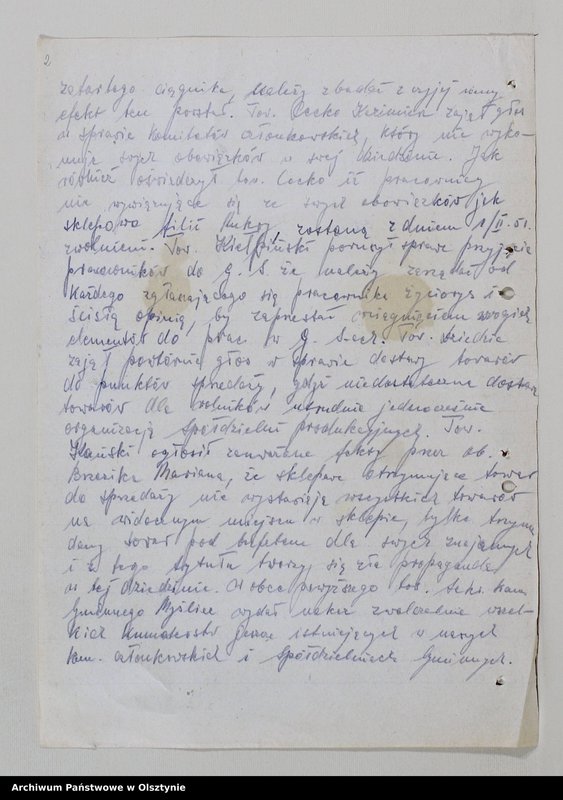 2
zatartego ciągnika, należy zbadać z czyjej winy
efekt ten powstał. Tow. Cecko Kazimierz zajął głos
w sprawie komitetów członkowskich, który nie wyko-
nuje swych obowiązków w swej dziedzinie. Jak
również oświadczył tow. Cecko iż pracownicy
nie wywiązujące się ze swych obowiązków jak
sklepowa filii zostaną z dniem 1/II.51.
zwolnieni. Tow. Kiełpiński poruszył sprawę przyjęcia
pracowników do G.S. że należy zarządać od
każdego zgłaszającego się pracownika życiorys i
ścisłą opinię, by zaprzestać wciągnięciem wrogich
elementów do prac. w G. S-ach. Tow.
zajął powtórnie głos w sprawie dostawy towarów
do punktów sprzedaży, gdyż niedostateczna dostawa
towarów dla rolników utrudnia jednocześnie
organizację spółdzielni produkcyjnych. Tow.
ogłosił zauważone fakty przez ob.
Mariana, że sklepowe otrzymujące towar
do sprzedaży nie wystawiają wszystkich towarów
na widocznym miejscu w sklepie, tylko trzyma
dany towar pod bufetem dla swych znajomych
i z tego tytułu tworzy się zła propaganda
w tej dziedzinie. Wobec powyższego tow. sekr. Kom.
Gminnego wydał nakaz zwalczenia wszel-
kich jeszcze istniejących w naszych
kom. członkowskich i Spółdzielniach Gminnych.
Archiwum Państwowe w Olsztynie